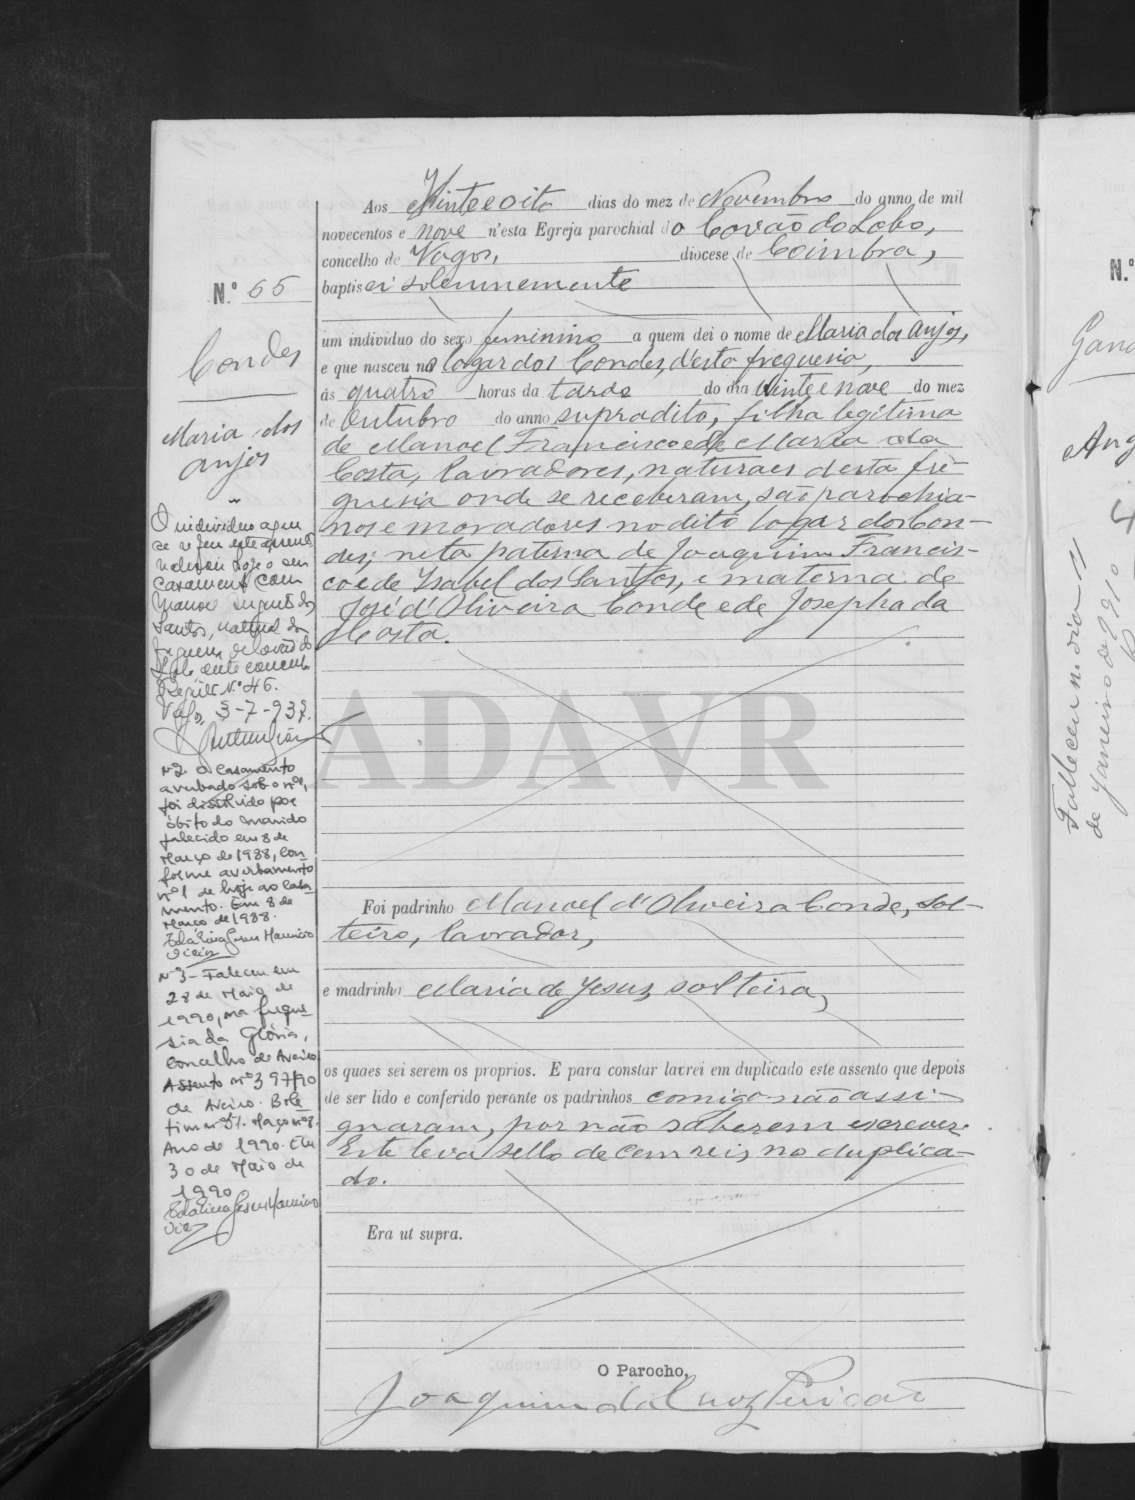 N.º 65
Condes
Maria dos
Anjos
Aos Vinte e oito dias do mez de Novembro do anno de mil
novecentos e nove n'esta Egreja parochial do Covão do Lobo,
concelho de Vagos, diocese de Coimbra,
baptisei solemnemente
um individuo do sexo feminino a quem dei o nome de Maria dos Anjos,
e que nasceu no logar dos Condes, d'esta freguesia,
ás quatro horas da tarde do dia vinte e nove do mez
de Outubro do anno supradito, filha legitima
de Manoel Francisco e de Maria da
Costa, lavradores, naturaes d'esta fre-
guesia onde se receberam, são parochia-
nos e moradores no dito logar dos Con-
des; neta paterna de Joaquim Francis-
co e de Isabel dos Santos, e materna de
José d'Oliveira Conde e de Josepha da
Costa.
Foi padrinho Manoel d'Oliveira Conde, sol-
teiro, lavrador,
e madrinha Maria de Jesus, solteira,
os quaes sei serem os proprios. E para constar lavrei em duplicado este assento que depois
de ser lido e conferido perante os padrinhos comigo não assi-
gnaram, por não saberem escrever.
Este leva sello de cem reis, no duplica-
do.
Era ut supra.
O Parocho,
Joaquim da Cruz
O individuo a que
se refere este assento
hoje o seu
casamento com
Santos, natural da
freguesia de Covão do
Lobo deste concelho
N.º 46.
Vagos, 3-7-93
Nº2 O casamento
averbado sob o nº1,
foi dissolvido por
óbito do marido
falecido em 8 de
Março de 1988, con-
forme averbamento
nº1 de hoje ao casa-
mento. Em 8 de
Março de 1988.
Nº3 - Faleceu em
28 de Maio de
1990, na fregue-
sia da Glória,
concelho de Aveiro
Assento nº 397/90
de Aveiro. Bole-
tim nº 51. Maço nº 8.
Ano de 1990. Em
30 de Maio de
1990
ADAVR
N.º
Ang
Falleceu no dia 11
de Janeiro de 1910